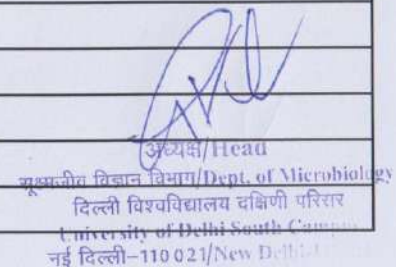 अध्यक्ष/Head
सूक्ष्मजीव विज्ञान विभाग/Dept. of Microbiology
दिल्ली विश्वविद्यालय दक्षिणी परिसर
University of Delhi South Campus
नई दिल्ली-110 021/New Delhi